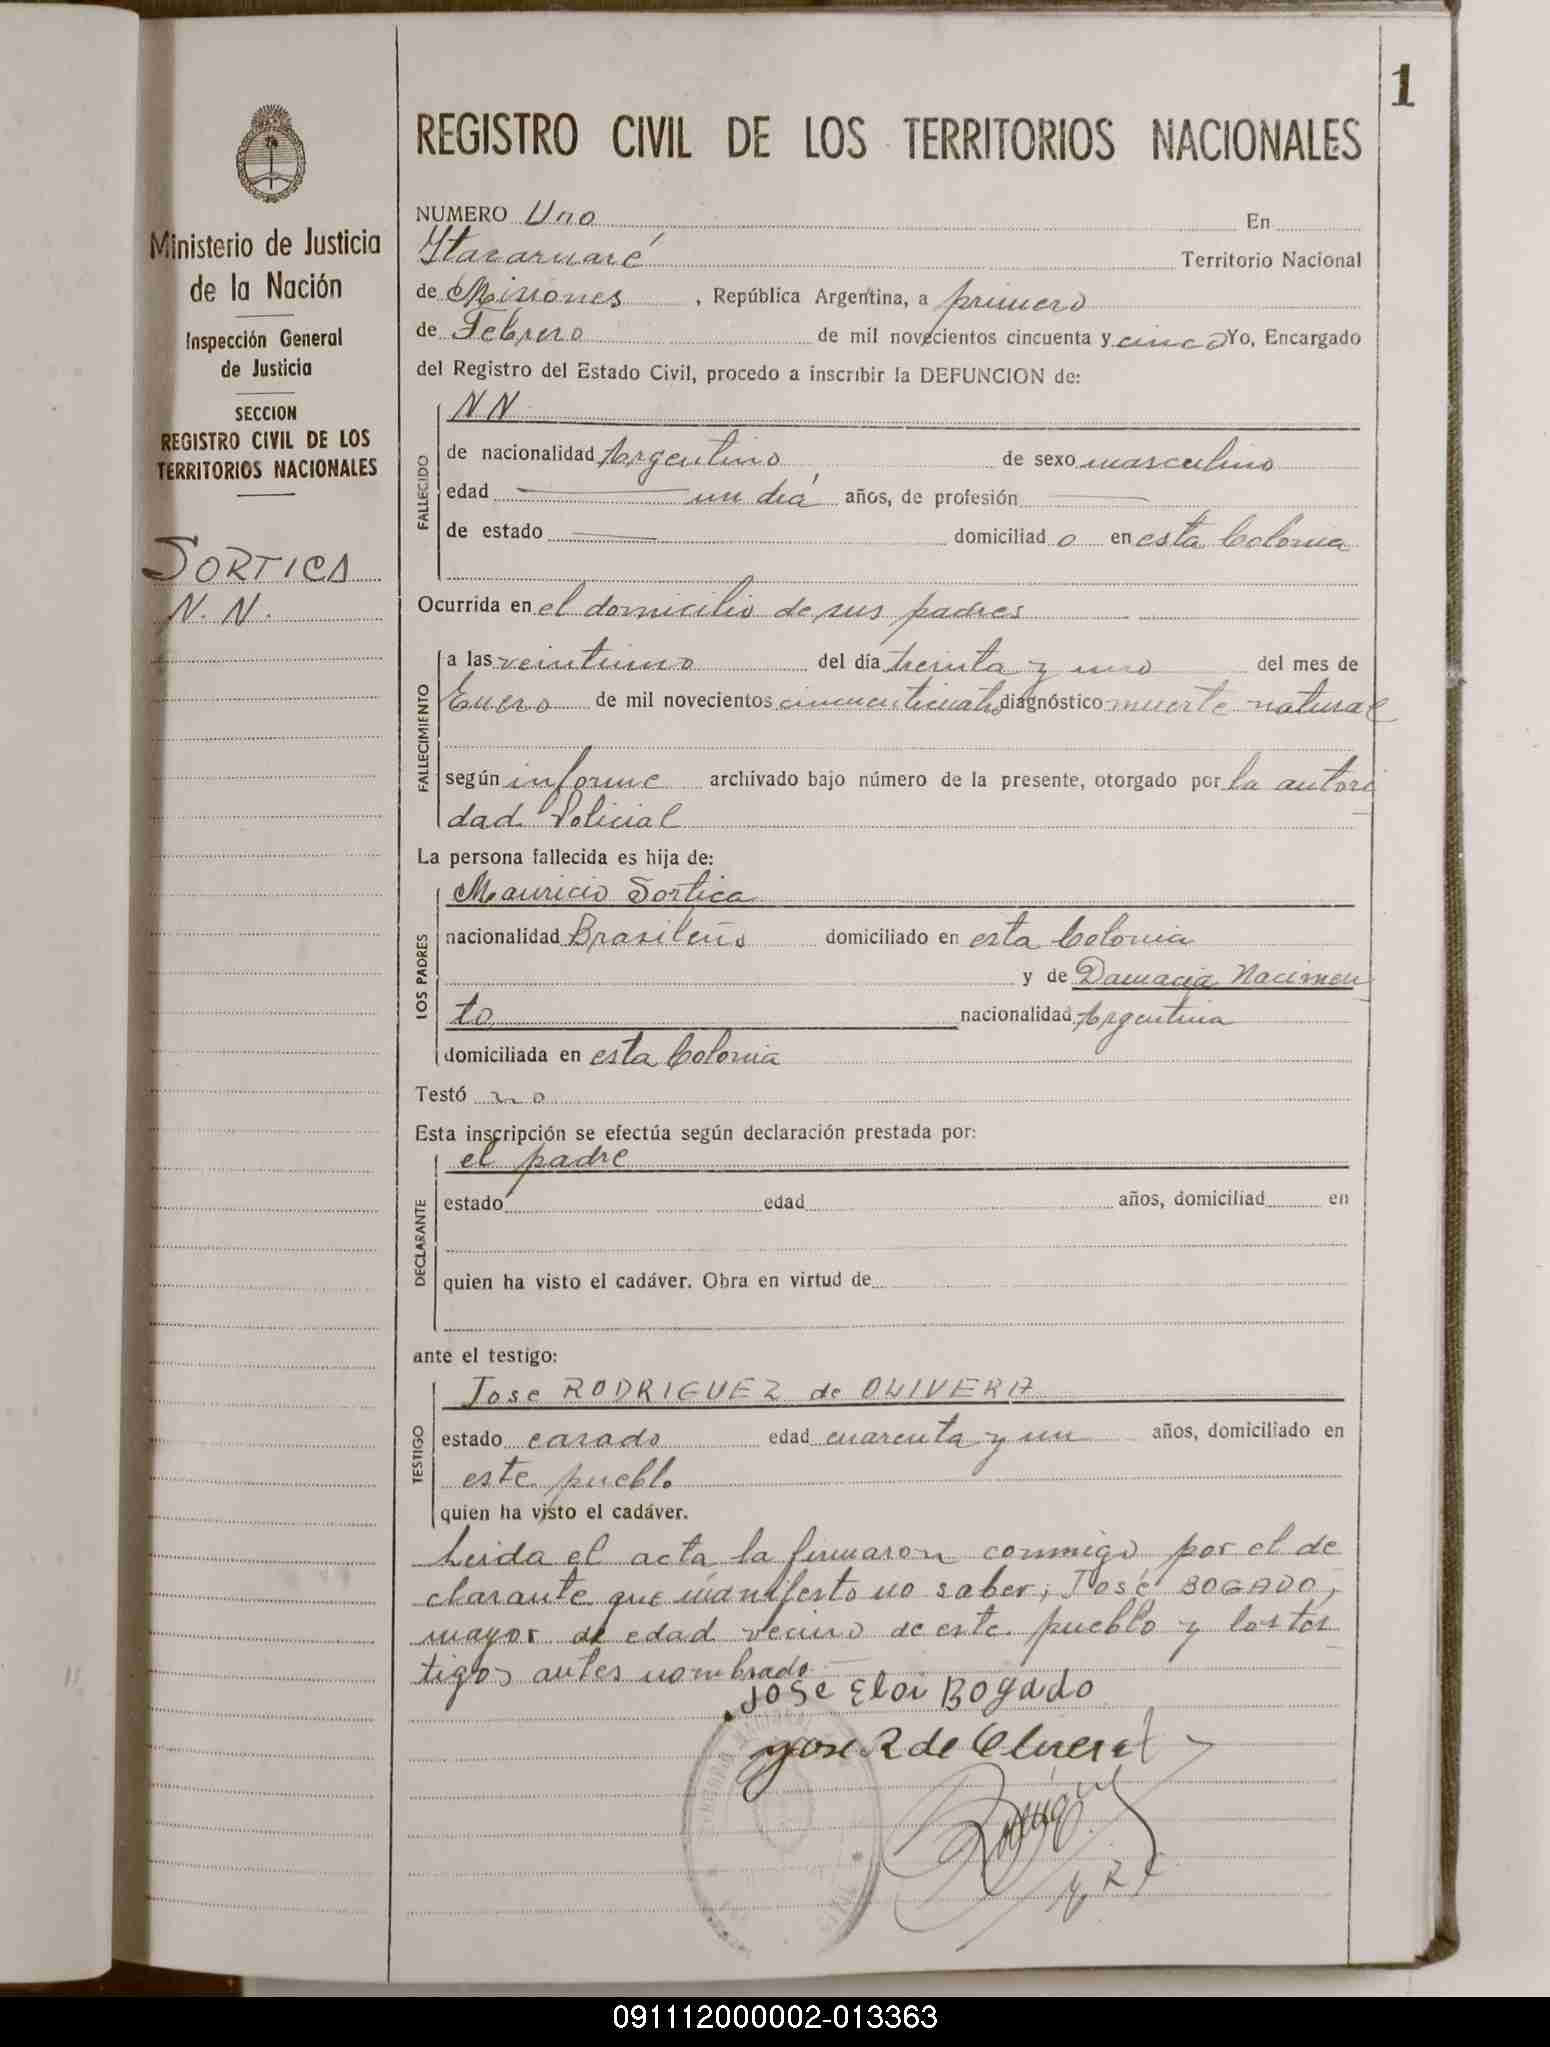 1
Ministerio de Justicia
de la Nación
Inspección General
de Justicia
SECCION
REGISTRO CIVIL DE LOS
TERRITORIOS NACIONALES
SORTICA
N. N.
REGISTRO CIVIL DE LOS TERRITORIOS NACIONALES
NUMERO Uno En
Itacaruaré Territorio Nacional
de Misiones, República Argentina, a primero
de Febrero de mil novecientos cincuenta y cinco Yo, Encargado
del Registro del Estado Civil, procedo a inscribir la DEFUNCION de:
FALLECIDO
N N
de nacionalidad Argentino de sexo masculino
edad un día años, de profesión
de estado domiciliad o en esta Colonia
Ocurrida en el domicilio de sus padres
FALLECIMIENTO
a las veintiuno del día treinta y uno del mes de
Enero de mil novecientos cincuenticuatro diagnóstico muerte natural
según informe archivado bajo número de la presente, otorgado por la autori
dad Policial
La persona fallecida es hija de:
LOS PADRES
Mauricio Sortica
nacionalidad Brasileño domiciliado en esta Colonia
y de Damacia Nacimen
to nacionalidad Argentina
domiciliada en esta Colonia
Testó no
Esta inscripción se efectúa según declaración prestada por:
DECLARANTE
el padre
estado edad años, domiciliad en
quien ha visto el cadáver. Obra en virtud de
ante el testigo:
TESTIGO
Jose RODRIGUEZ de OLIVERA
estado casado edad cuarenta y un años, domiciliado en
este pueblo
quien ha visto el cadáver.
Leida el acta la firmaron conmigo por el de
clarante que manifesto no saber, José BOGADO,
mayor de edad vecino de este pueblo y los tes
tigos antes nombrado
Jose Eloi Bogado
Jose R de Olivera
091112000002-013363